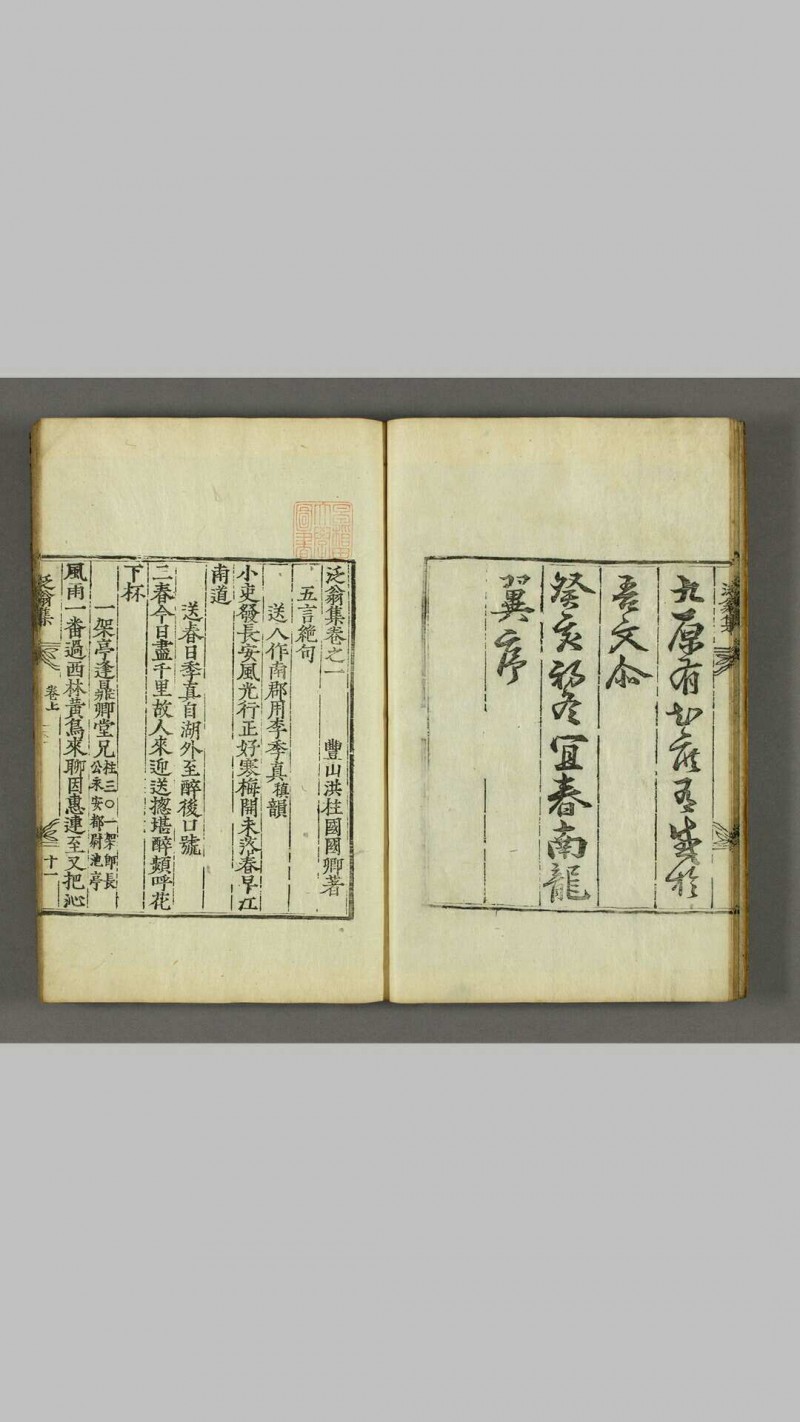 九原有知庶有感於
吾文介
癸亥初冬宜春南龍
翼序
泛翁集卷之一 豐山洪柱國國卿著
五言絶句
送人作南郡用李季真稹韻
小吏發長安風光行正好寒梅開未落春早江
南道
送春日季真自湖外至醉後口號
三春今日盡千里故人來迎送摠堪醉頻呼花
下杯
一架亭逢鼎卿堂兄柱三〇一架卽長公永安都尉池亭
風雨一番過西林黃鳥來聊因惠連至又把沁
泛翁集 卷上 十一